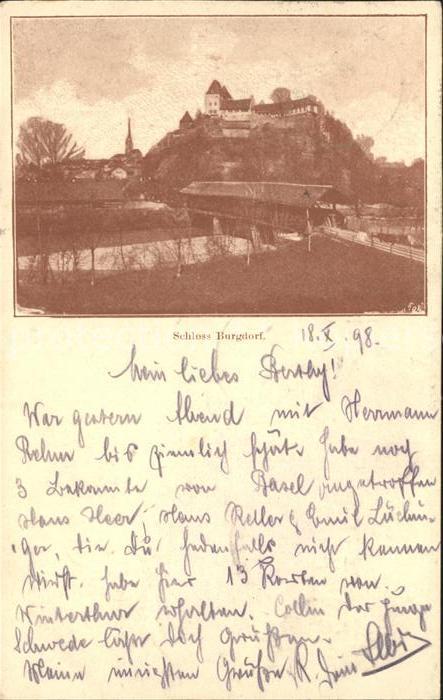 Schloss Burgdorf.
18.X.98.
Mein liebes Berthy!
War gestern Abend mit Herrmann
Rehm bis ziemlich spät. Habe noch
3 Bekannte von Basel angetroffen
Hans Heer, Hans Keller & Emil Lüchin-
ger, die Du jedenfalls nicht kennen
wirst. Habe hier 13 Karten von
Winterthur erhalten. der junge
Schwede lässt Dich Grüssen.
Meine innigsten Grüsse Dein